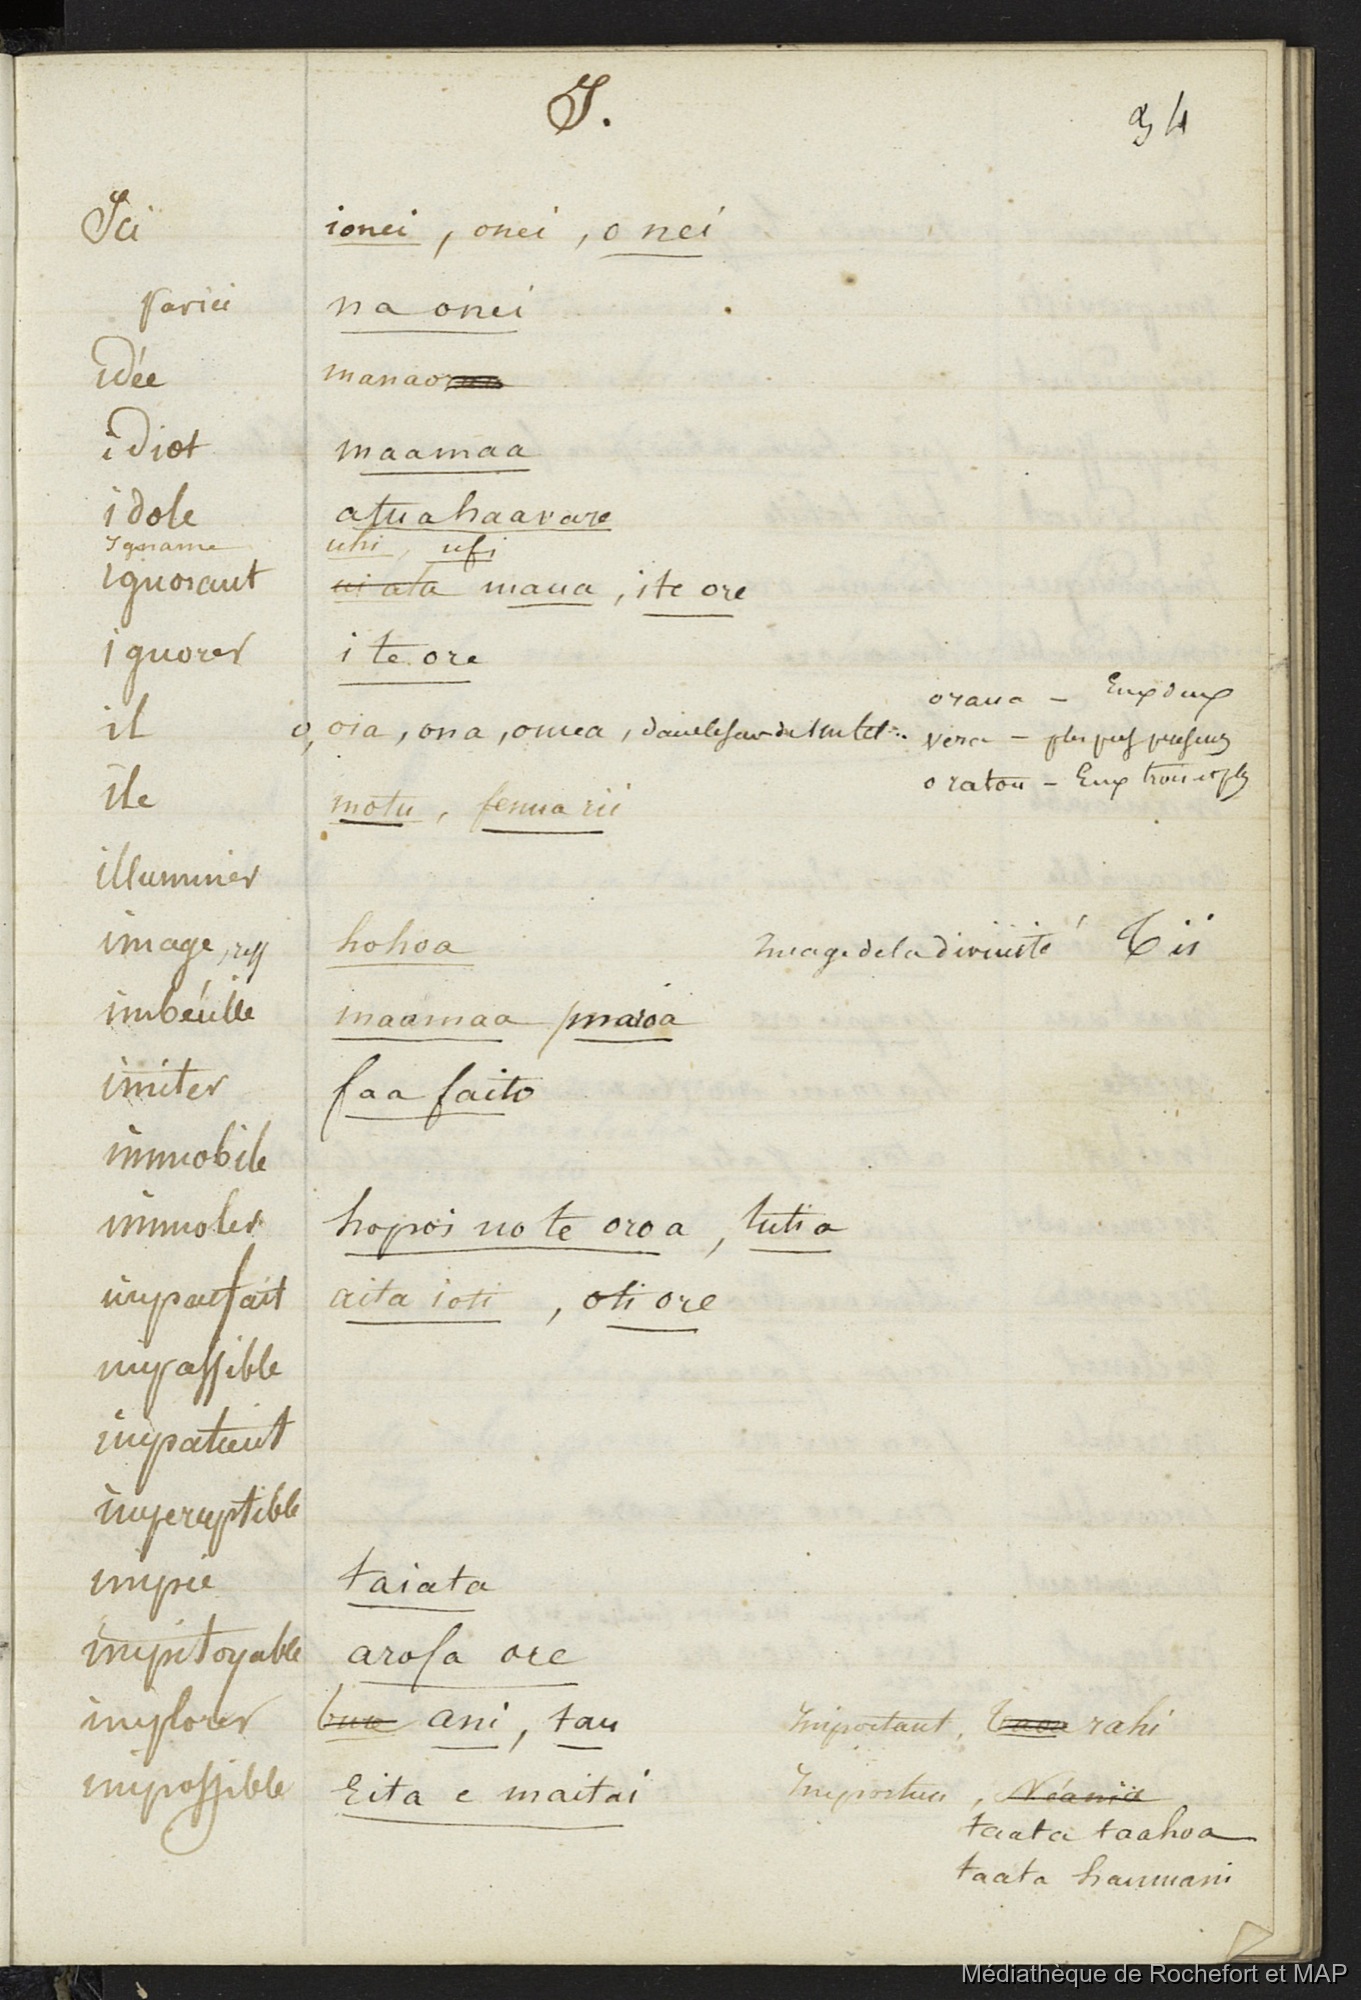 I.
34
Ici ionei, onei, o nei
par ici na onei
idée manao
idiot maamaa
idole atua haavare
Igname uhi, ufi
ignorant ui ata maua, ite ore
ignorer ite ore
oraua - Eux deux
il o, oia, ona, omea,
vera - plus
oratou - Eux trois et plus
île motu, fenua rii
illuminer
image, hohoa Image de la divinité Tii
imbécille maamaa / maroa
imiter faa faito
immobile
immoler hopoi no te oroa, tutia
imparfait aita i oti, oti ore
impassible
impatient
imperceptible
impie taiata
impitoyable arofa ore
implorer bure ani, tau Important, rahi
impossible Eita e maitai Importun, Néania
taata taahoa
taata haumani
Médiathèque de Rochefort et MAP